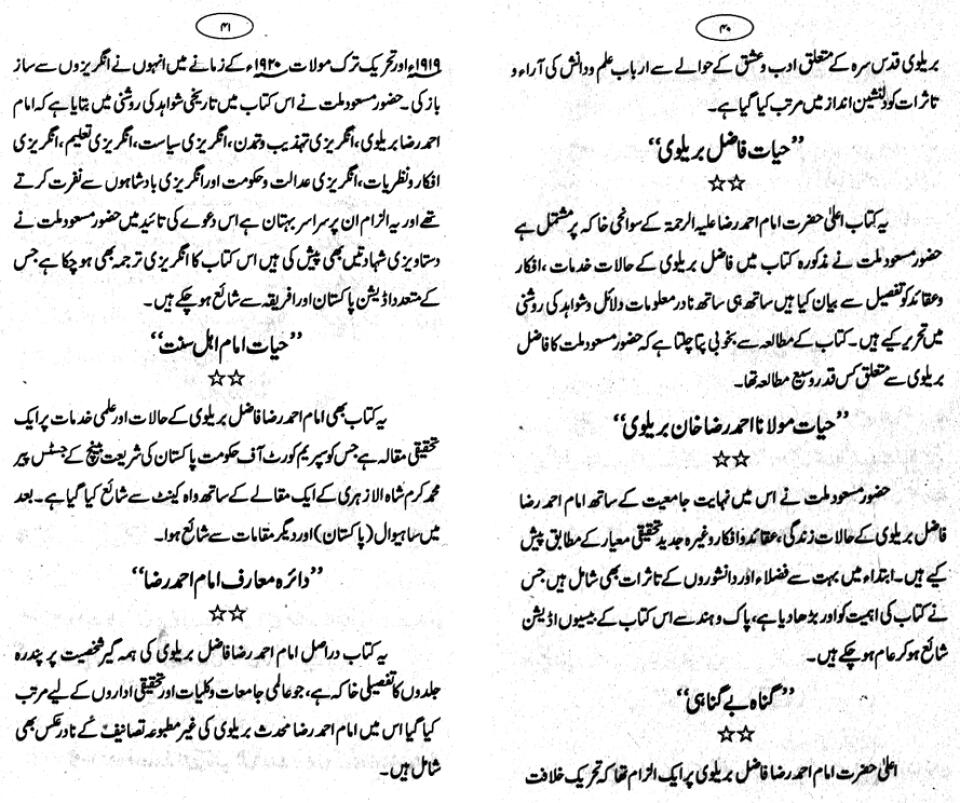 ۴۰
بریلوی قدس سرہ کے متعلق ادب وعشق کے حوالے سے ارباب علم ودانش کی آراء و
تاثرات کو دلنشین انداز میں مرتب کیا گیا ہے۔
”حیات فاضل بریلوی“
☆☆
یہ کتاب اعلیٰ حضرت امام احمد رضا علیہ الرحمۃ کے سوانحی خاکہ پر مشتمل ہے
حضور مسعود ملت نے مذکورہ کتاب میں فاضل بریلوی کے حالات خدمات ، افکار
وعقائد کو تفصیل سے بیان کیا ہیں ساتھ ہی ساتھ نادر معلومات دلائل وشواہد کی روشنی
میں تحریر کیے ہیں۔ کتاب کے مطالعہ سے بخوبی پتا چلتا ہے کہ حضور مسعود ملت کا فاضل
بریلوی سے متعلق کس قدر وسیع مطالعہ تھا۔
”حیات مولانا احمد رضا خان بریلوی“
☆☆
حضور مسعود ملت نے اس میں نہایت جامعیت کے ساتھ امام احمد رضا
فاضل بریلوی کے حالات زندگی، عقائد و افکار وغیرہ جدید تحقیقی معیار کے مطابق پیش
کیے ہیں۔ ابتداء میں بہت سے فضلاء اور دانشوروں کے تاثرات بھی شامل ہیں جس
نے کتاب کی اہمیت کو اور بڑھا دیا ہے، پاک و ہند سے اس کتاب کے بیسیوں اڈیشن
شائع ہو کر عام ہو چکے ہیں۔
”گناہ بے گناہی“
☆☆
اعلیٰ حضرت امام احمد رضا فاضل بریلوی پر ایک الزام تھا کہ تحریک خلافت
۴۱
۱۹۱۹ء اور تحریک ترک موالات ۱۹۲۰ء کے زمانے میں انہوں نے انگریزوں سے ساز
باز کی۔ حضور مسعود ملت نے اس کتاب میں تاریخی شواہد کی روشنی میں بتایا ہے کہ امام
احمد رضا بریلوی، انگریزی تہذیب وتمدن، انگریزی سیاست، انگریزی تعلیم، انگریزی
افکار و نظریات، انگریزی عدالت و حکومت اور انگریزی بادشاہوں سے نفرت کرتے
تھے اور یہ الزام ان پر سراسر بہتان ہے اس دعوے کی تائید میں حضور مسعود ملت نے
دستاویزی شہادتیں بھی پیش کی ہیں اس کتاب کا انگریزی ترجمہ بھی ہو چکا ہے جس
کے متعدد اڈیشن پاکستان اور افریقہ سے شائع ہو چکے ہیں۔
”حیات امام اہل سنت“
☆☆
یہ کتاب بھی امام احمد رضا فاضل بریلوی کے حالات اور علمی خدمات پر ایک
تحقیقی مقالہ ہے جس کو سپریم کورٹ آف حکومت پاکستان کی شریعت بینچ کے جسٹس پیر
محمد کرم شاہ الازہری کے ایک مقالے کے ساتھ واہ کینٹ سے شائع کیا گیا ہے۔ بعد
میں ساہیوال (پاکستان) اور دیگر مقامات سے شائع ہوا۔
”دائرہ معارف امام احمد رضا“
☆☆
یہ کتاب دراصل امام احمد رضا فاضل بریلوی کی ہمہ گیر شخصیت پر پندرہ
جلدوں کا تفصیلی خاکہ ہے، جو عالمی جامعات و کلیات اور تحقیقی اداروں کے لیے مرتب
کیا گیا اس میں امام احمد رضا محدث بریلوی کی غیر مطبوعہ تصانیف کے نادر عکس بھی
شامل ہیں۔